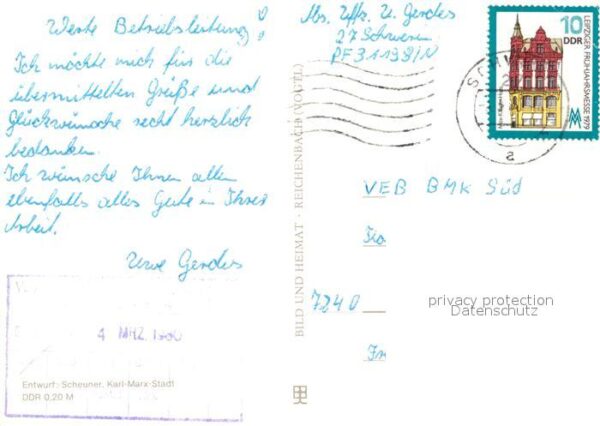 Werte Betriebsleitung!
Ich möchte mich für die
übermittelten Grüße und
Glückwünsche recht herzlich
bedanken.
Ich wünsche Ihnen allen
ebenfalls alles Gute in Ihrer
Arbeit.
Uwe Gerdes
4. MRZ. 1980
Entwurf: Scheuner, Karl-Marx-Stadt
DDR 0,20 M
BILD UND HEIMAT · REICHENBACH (VOGTL)
Abs. Uffz. U. Gerdes
27 Schwerin
PF 31198/N
10
DDR
LEIPZIGER FRÜHJAHRSMESSE 1979
VEB BMK Süd
7240
privacy protection
Datenschutz